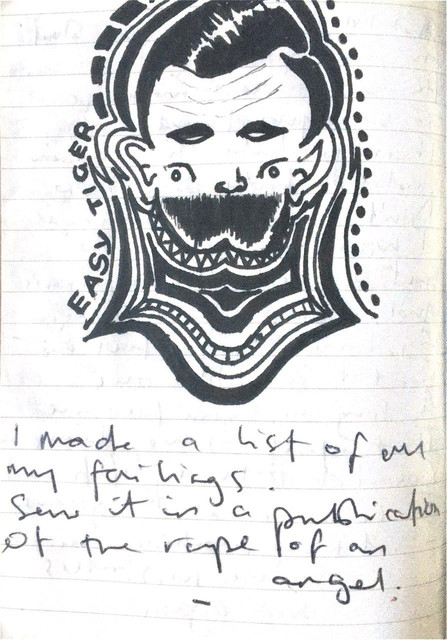 EASY TIGER
I made a list of all
my failings.
Saw it in a publication
of the rape of an
angel.